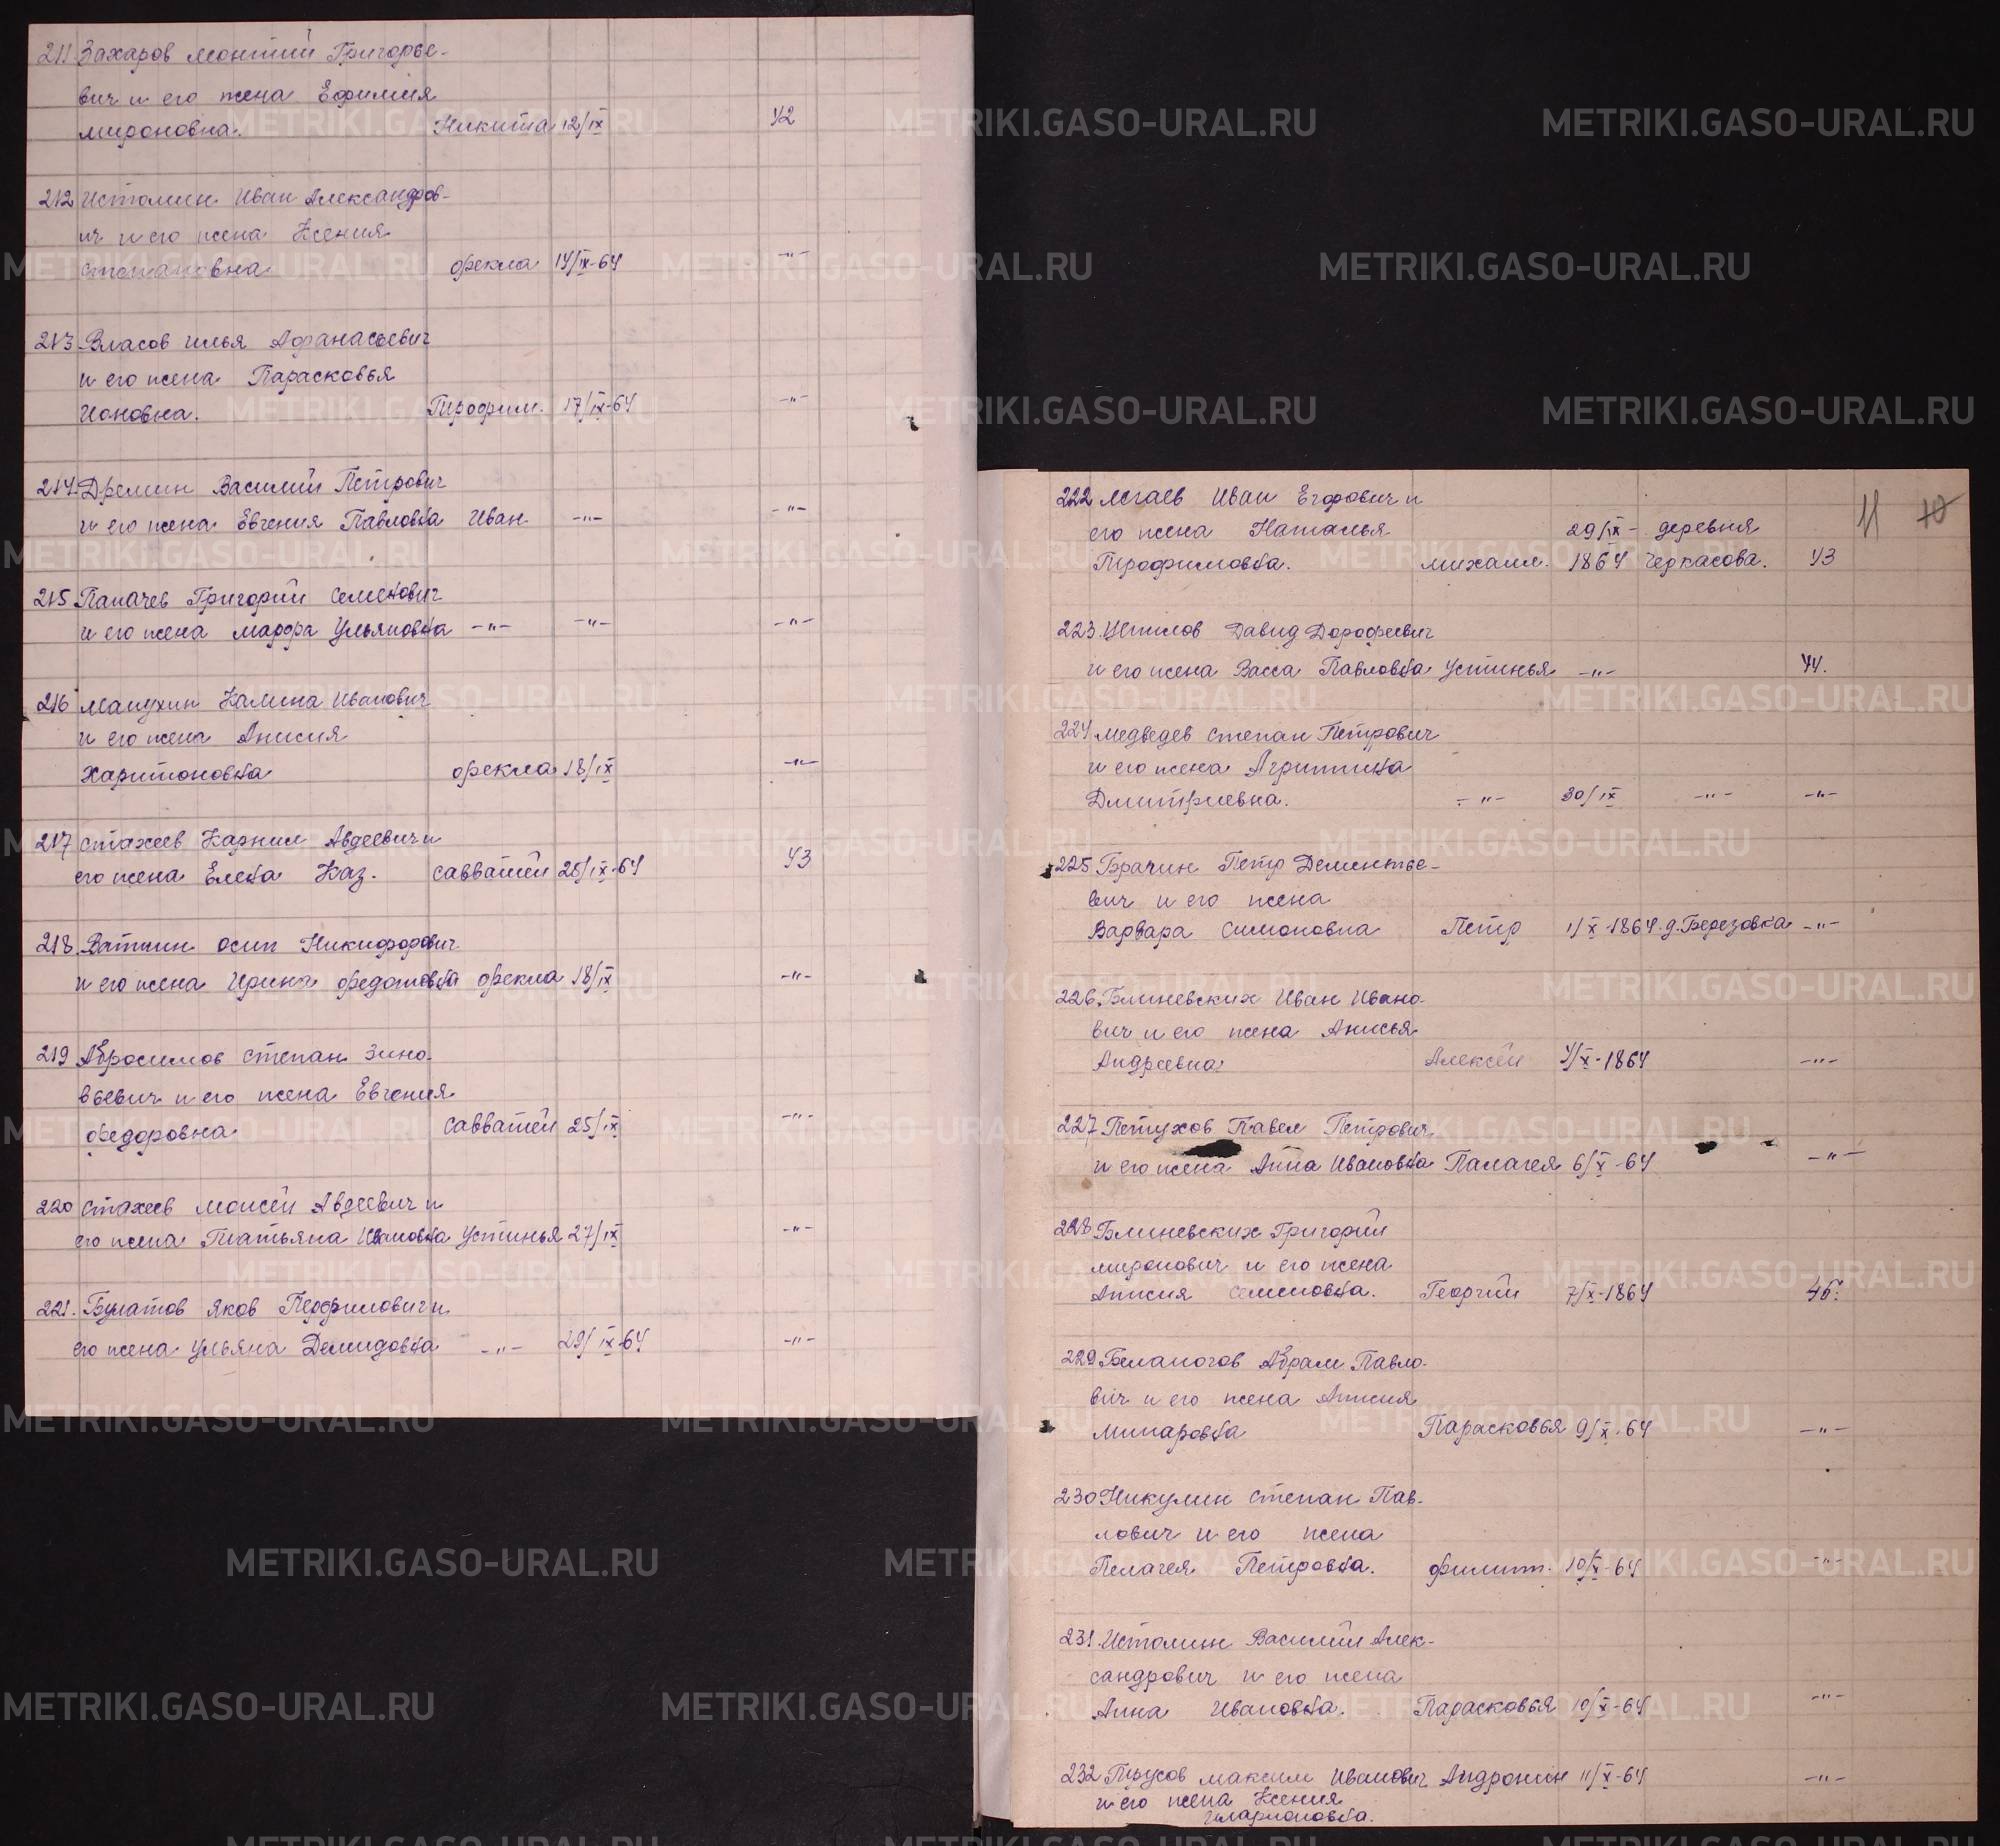 211. Захаров Монтий Григорье-
вич и его жена Ефимия
Мироновна. Никита 12/IX 42
212 Истомин Иван Александров-
ич и его жена Ксения
Степановна Фекла 14/IX-64 -"-
213 Власов Илья Афанасьевич
и его жена Парасковья
Ионовна. Трофим. 17/IX-64 -"-
214. Дремин Василий Петрович
и его жена Евгения Павловна Иван -"- -"-
215 Папачев Григорий Семенович
и его жена Марфа Ульяновна -"- -"- -"-
216 Манухин Калина Иванович
и его жена Анисия
Харитоновна Фекла 18/IX -"-
217 Стахеев Карнил Авдеевич и
его жена Елена Каз. Савватей 28/IX-64 43
218. Ваткин Осип Никифорович
и его жена Ирина Федотовна Фекла 18/IX -"-
219 Абросимов Степан Зино-
вьевич и его жена Евгения
Федоровна Савватей 25/IX -"-
220 Стахеев Моисей Авдеевич и
его жена Татьяна Ивановна Устинья 27/IX -"-
221. Булатов Яков Перфилович и
его жена Ульяна Демидовна -"- 29/IX-64 -"-
11 10
222 Легаев Иван Егорович и
его жена Наталья 29/IX- деревня
Трофимовна. Михаил. 1864 Черкасова. 43
223. Шипилов Давид Дорофеевич
и его жена Васса Павловна Устинья -"- 44.
224 Медведев Степан Петрович
и его жена Агрипина
Дмитриевна. -"- 30/IX -"- -"-
225 Брачин Петр Дементье-
вич и его жена
Варвара Симоновна Петр 1/X-1864. д. Березовка -"-
226. Блиневских Иван Ивано-
вич и его жена Анисья
Андреевна Алексей 4/X-1864 -"-
227 Петухов Павел Петрович
и его жена Анна Ивановна Палагея 6/X-64 -"-
228 Блиневских Григорий
Миронович и его жена
Анисия Семеновна. Георгий 7/X-1864 45.
229 Белоногов Абрам Павло-
вич и его жена Анисия
Макаровна Парасковья 9/X-64 -"-
230 Никулин Степан Пав-
лович и его жена
Пелагея Петровна. Филипп. 10/X-64 -"-
231. Истомин Василий Алек-
сандрович и его жена
Анна Ивановна. Парасковья 10/X-64 -"-
232 Трусов Максим Иванович Андроник 11/X-64 -"-
и его жена Ксения
Иларионовна.
METRIKI.GASO-URAL.RU